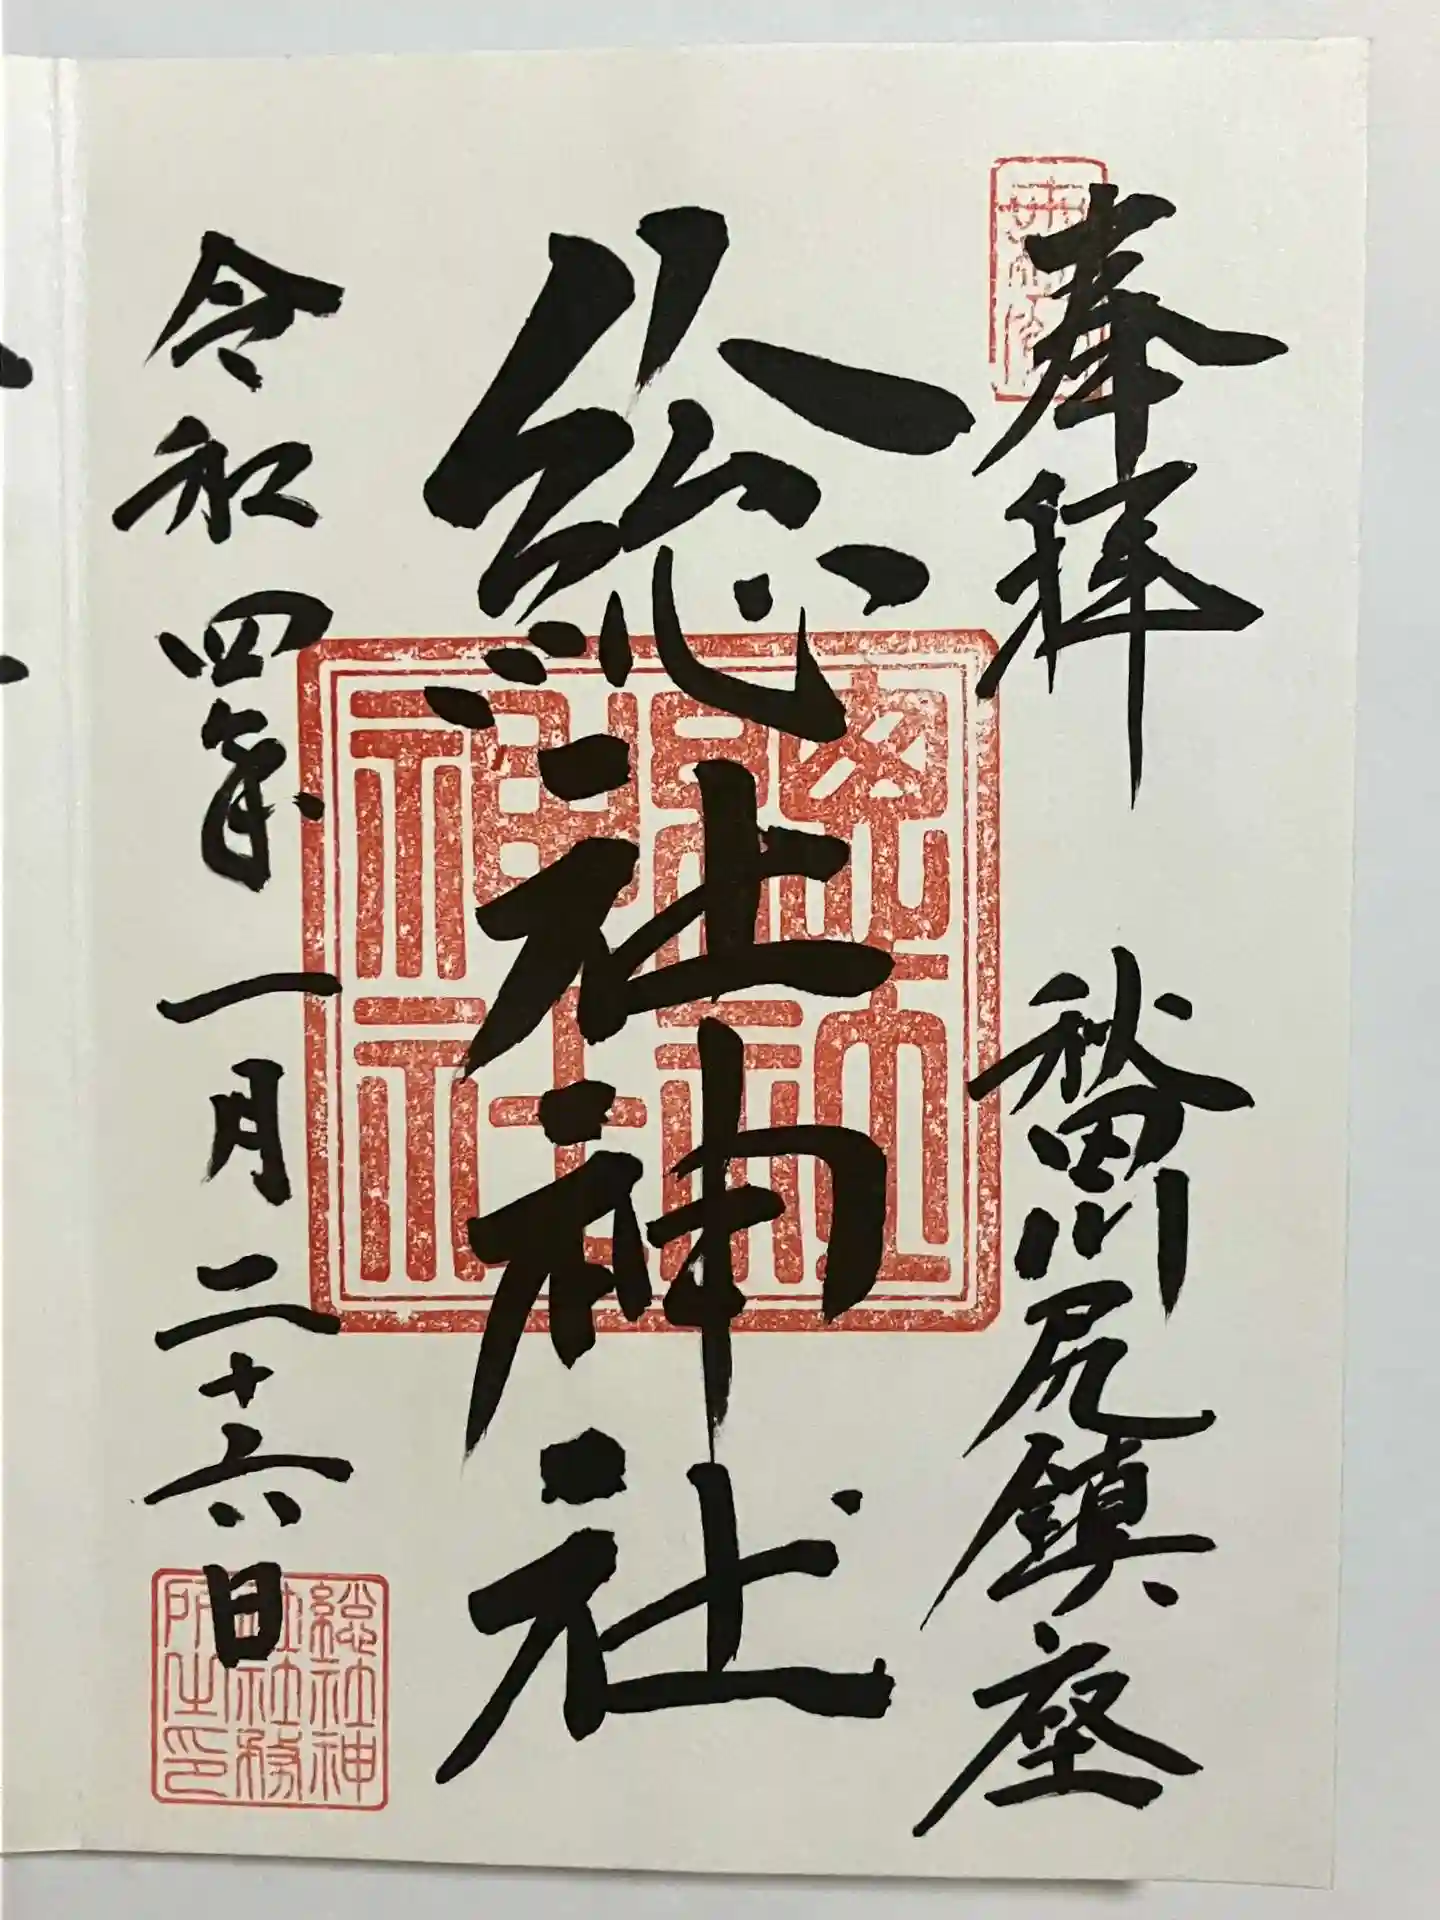 奉拝 秋田川尻鎮座
総社神社
令和四年一月二十六日
総社神
社社務
所之印